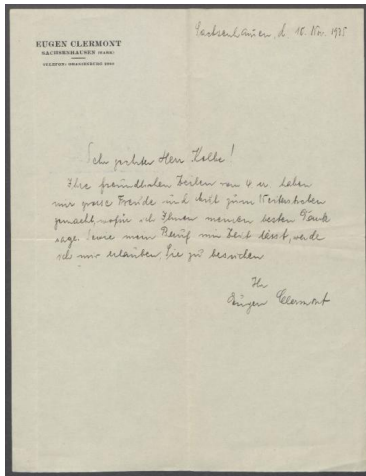 EUGEN CLERMONT
SACHSENHAUSEN (MARK)
TELEFON: ORANIENBURG 2953
Sachsenhausen, d. 10. Nov. 1935
Sehr geehrter Herr Kolbe!
Ihre freundlichen Zeilen vom 4. er. haben
mir grosse Freude und
gemacht, wofür ich Ihnen meinen besten Dank
sage. Sowie mein Beruf mir Zeit lässt, werde
ich mir erlauben, Sie zu besuchen
Ihr
Eugen Clermont